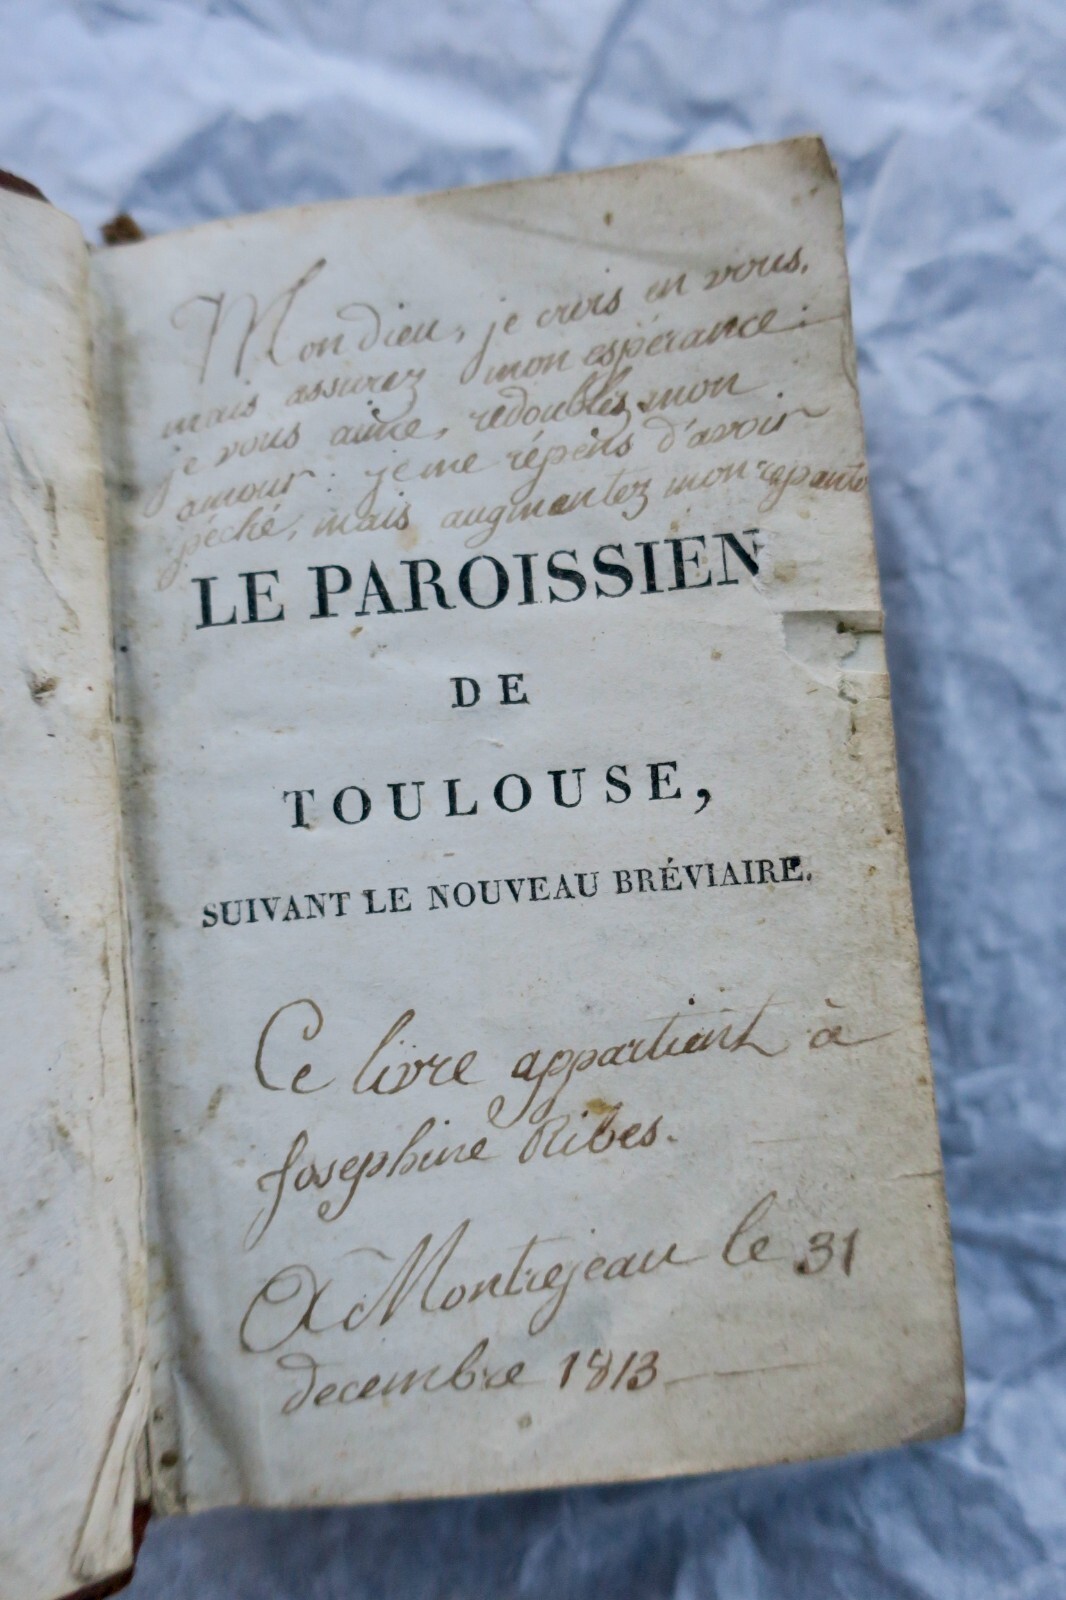 Mon Dieu, je crois en vous,
mais assurez mon espérance :
je vous aime, redoublez mon
amour : je me répens d'avoir
péché, mais augmentez mon repante
LE PAROISSIEN
DE
TOULOUSE,
SUIVANT LE NOUVEAU BRÉVIAIRE.
Ce livre appartient à
Josephine Ribes.
A Montrejeau le 31
decembre 1813